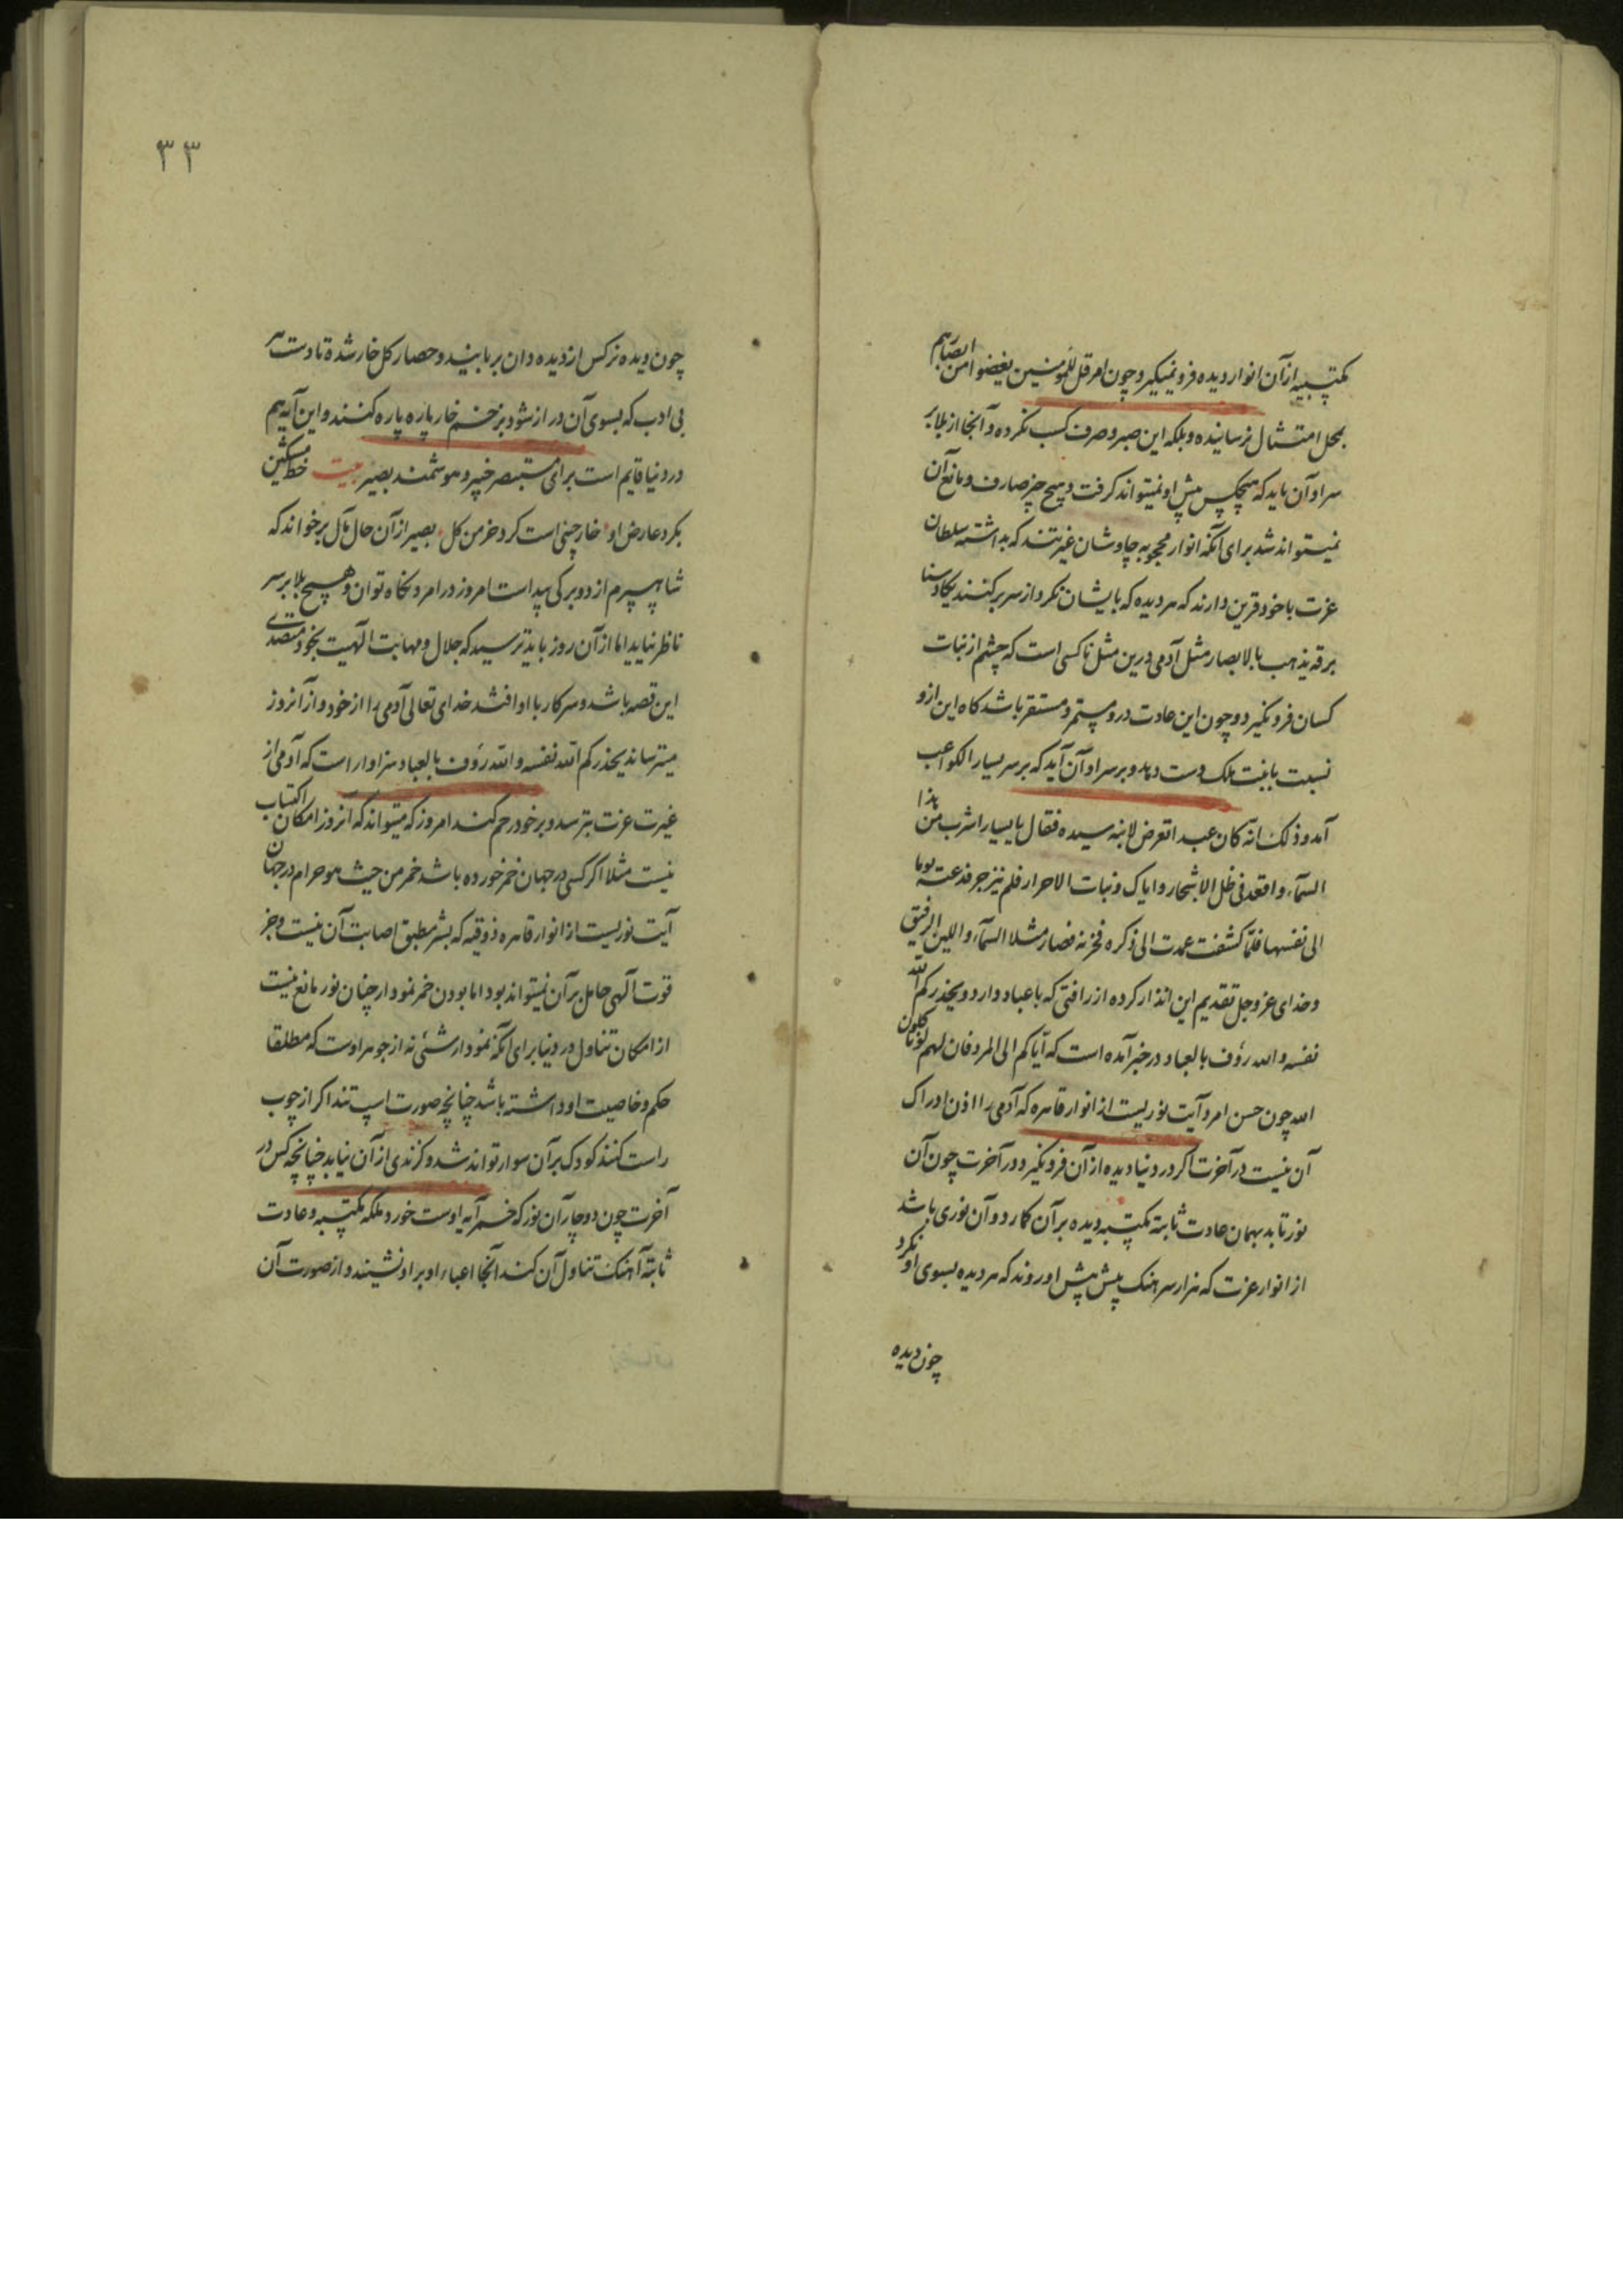 مکتسبه ازآن انوار دیده فرو نمیگیرد و چون امر قل للمؤمنین یغضوا من ابصارهم
بمحل امتثال نرسانیده و ملکه این صبر و صرف کسب نکرده و آنجا از بلا بر
سر او آن یابد که هیچکس پیش او نمیتواند گرفت و هیچ چیز صارف و مانع آن
نمیتواند شد برای آنکه انوار محجوبه چاوشان غیرتند که بداشته سلطان
عزت با خود قرین دارند که هر دیده که بایشان نگرد از سر برکنند یکاد سنا
برقه یذهب بالابصار مثل آدمی درین مثل ناکسی است که چشم از بنات
کسان فرو نگیرد و چون این عادت درو مستمر و مستقر باشد کاه این ازو
نسبت با بنت ملک دست دهد و بر سر او آن آید که بر سر یسار الکواعب
آمد و ذلک انه کان عبدا تعرض لابنه سیده فقال یا یسار اشرب من هذا
السمآء و اقعد فی ظل الاشجار و ایاک و بنات الاحرار فلم ینزجر فدعته یوما
الی نفسها فلما کشفت عمدت الی ذکره فصار مثلا السمآء و اللبن الرقیق
و خدای عز و جل تقدیم این انذار کرده از رافتی که با عباد دارد و یحذرکم الله
نفسه و الله رؤف بالعباد و در خبر آمده است که ایاکم الی المرد فان لهم لونا کلون
الله چون حسن امرد آیت نوریست از انوار قاهره که آدمی را اذن ادراک
آن نیست در آخرت اگر در دنیا دیده از آن فرو نگیرد در آخرت چون آن
نور تابد بهمان عادت ثابته مکتسبه دیده بر آن کمارد و آن نوری باشد
از انوار عزت که هزار سرهنک پیش پیش او روند که هر دیده بسوی او نکرد
چون دیده
۳۳
چون دیده نرکس از دیده دان بربایند و حصار کل خار شده تا دست
بی ادب که بسوی آن دراز شود بزخم خار پاره پاره کنند و این آیه هم
در دنیا قایم است برای مستبصر خبیر و هوشمند بصیر بیت خط مشکین
بکرد عارض او خار چینی است کرد خرمن کل بصیر از آن حال مآل برخواند که
شاه سپرم از دو برکی پیداست امروز در امرد نکاه توان و هیچ بلا بر سر
ناظر نیاید اما از آن روز باید ترسید که جلال و مهابت الهیت بخود متصدی
این قصه باشد و سر کار با او افتد خدای تعالی آدمی را از خود و از آنروز
میترساند یحذرکم الله نفسه و الله رؤف بالعباد سزاوار است که آدمی از
غیرت عزت بترسد و بر خود رحم کند امروز که میتواند که آنروز امکان اکتساب
نیست مثلا اکر کسی در جهان خمر خورده باشد خمر من حیث هو حرام در جهان
آیت نوریست از انوار قاهره ذوقیه که بشر مطیق اصابت آن نیست و جز
قوت الهی حامل بر آن نمیتواند بود اما بودن خمر نمودار چنان نور مانع نیست
از امکان تناول در دنیا برای آنکه نمودار شئی نه از جوهر اوست که مطلقا
حکم و خاصیت او داشته باشد چنانچه صورت اسپ تند اکر از چوب
راست کنند کودک بر آن سوار تواند شد و کزندی از آن نیابد چنانچه کس در
آخرت چون دوچار آن نور که خمر آیه اوست خورد ملکه مکتسبه و عادت
ثابته آهنک تناول آن کند آنجا اعباء او بر او نشیند و از صورت آن